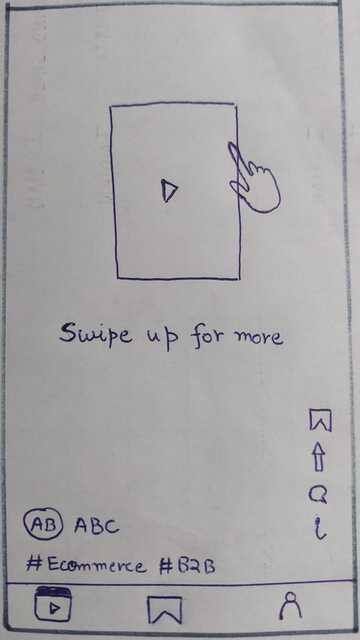 Swipe up for more
AB ABC
#Ecommerce #B2B